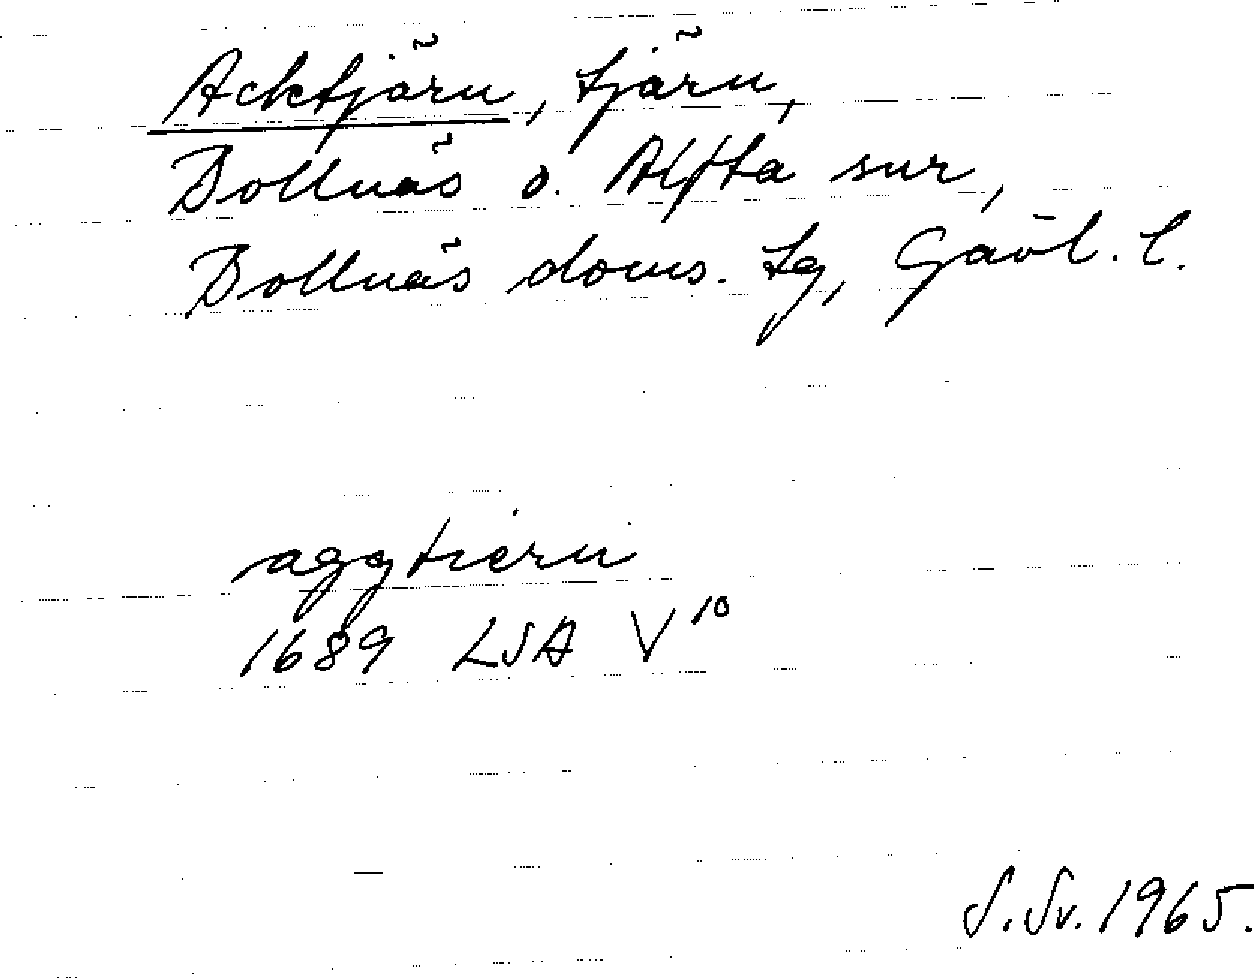 Acktjärn, tjärn,
Bollnäs o. Alfta snr,
Bollnäs doms. tg, Gävl. l.
aggtiern
1689 LSA V¹⁰
S.Sv. 1965.